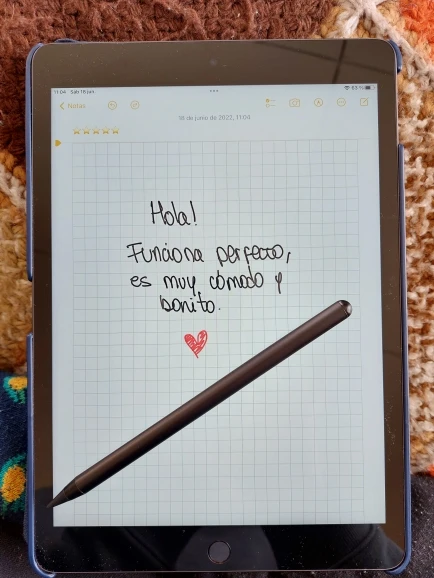 11:04 Sáb 18 jun
63 %
Notas
18 de junio de 2022, 11:04
Hola!
Funciona perfecto,
es muy cómodo y
bonito.